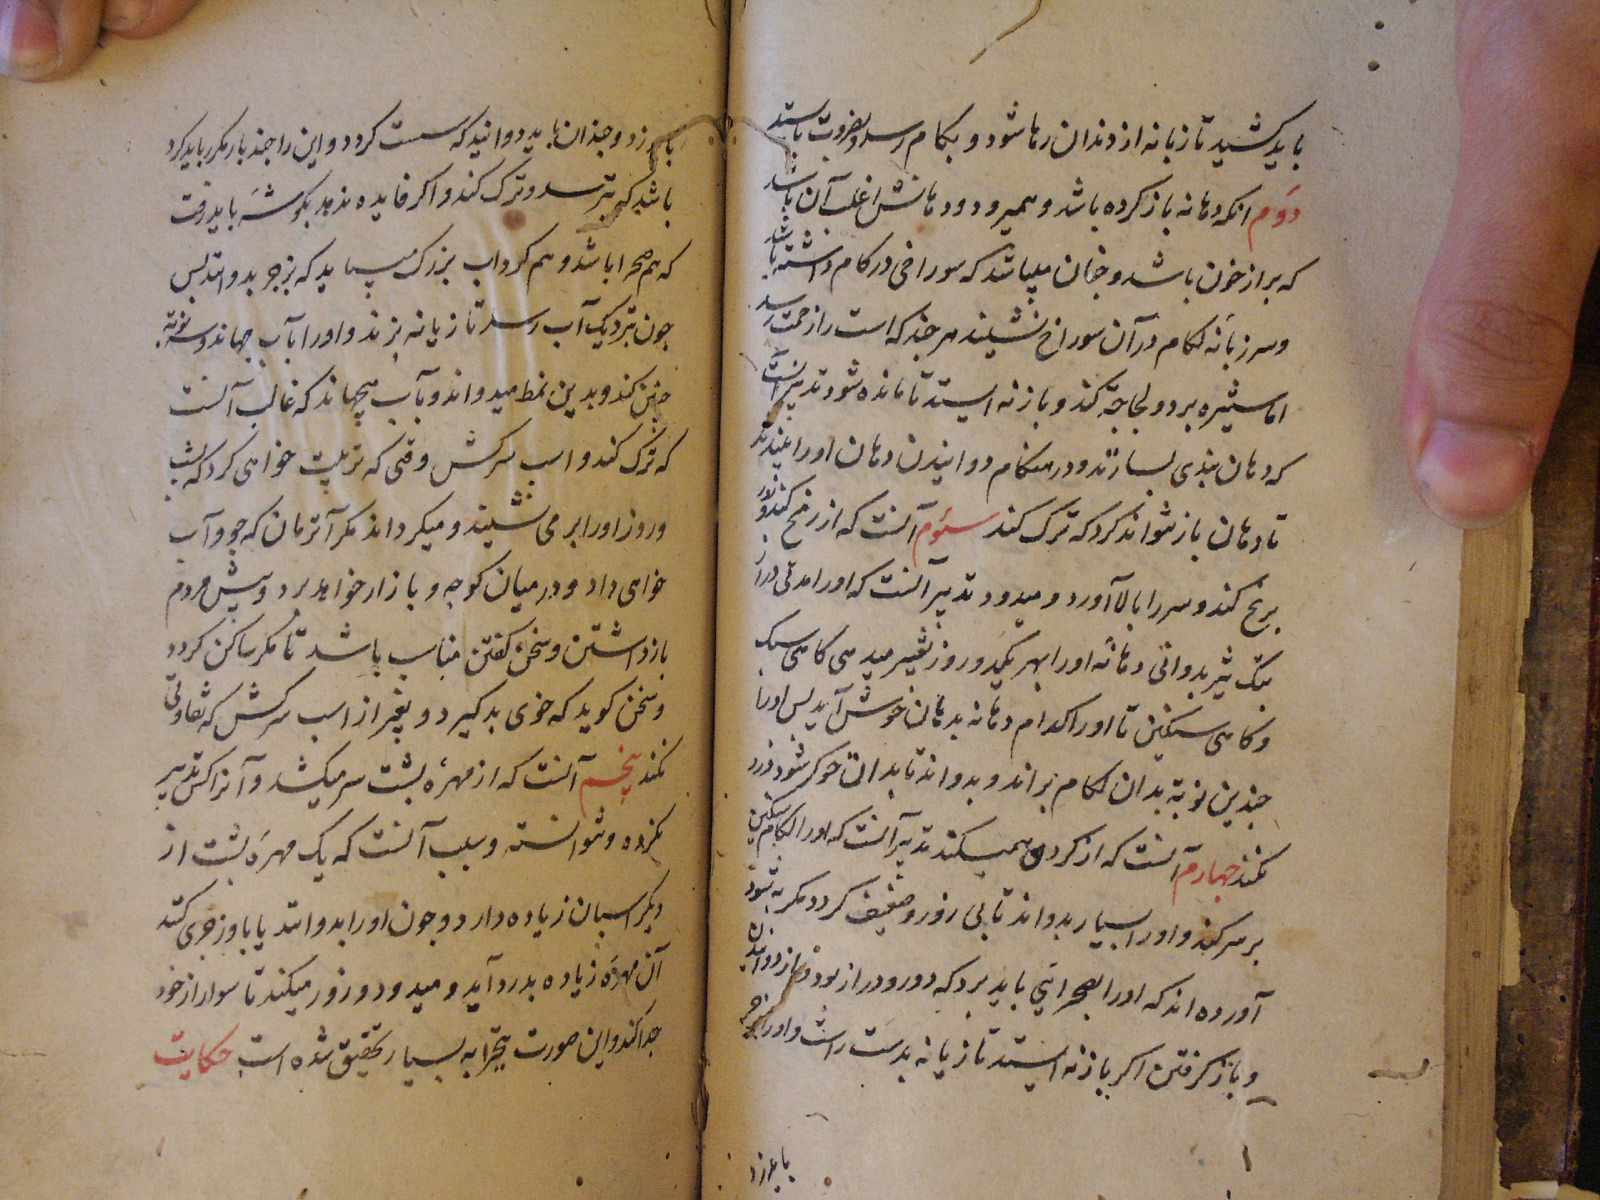 باید کشید تا زبانه از دندان رها شود و بکام رسد و بضرورت باستد
دوم انکه دهانه باز کرده باشد و همیرود و دهانش اغلب آن باشد
که براز خون باشد و چنان میباشد که سوراخی در کام داشته باشد
و سر زبانه لکام در آن سوراخ نشیند هر چند که است را زحمت رسد
اما ستیزه برد و لجاجة کند و باز نه ایستد تا مانده شود تدبیر آنست
که دهان بندی بسازند و در هنکام دوانیدن دهان اورا ببندند
تا دهان باز نتواند کرد که ترک کند سئوم آنست که از زنخ کند و زور
بزنخ کند و سر را بالا آورد و میدود تدبیر آنست که اورا مدتی دراز
بتک تیز بدوانی و دهانه اورا بهر یکدو روز تغییر میدهی کاهی سبک
و کاهی سنکین تا اورا کدام دهانه بدهان خوش آید پس اورا
چندین نوبة بدان لکام براند و بدواند تا بدان خوکر شود و زور
نکند چهارم آنست که از کردن همیکند تدبیر آنست که اورا لکام سنکین
بر سر کند و اورا بسیار بدواند تا بی زور و ضعیف کردد مکر به شود
آورده اند که اورا بصحرایی باید برد که دور و دراز بود و از دوانیدن
و باز کرفتن اکر باز نه ایستد تازیانه بدست راست و اورا
با یرزد
زد و چندان باید دوانید که سست کردد و این را چند بار مکرر باید کرد
باشد که بترسد و ترک کند و اکر فایده ندهد بکوشهٔ باید رفت
که هم صحرا باشد و هم کرداب بزرک میباید که بزجر بدوانند پس
چون نزدیک آب رسد تازیانه بزند و اورا بآب جهاند و سه نوبة
چنین کند و بدین نمط میدواند و بآب میجهاند که غالب آنست
که ترک کند و اسب سرکش وقتی که تربیت خواهی کرد که شب
و روز اورا بر می نشیند و میکرداند مکر آنزمان که جو و آب
خواهی داد و در میان کوچه و بازار خواهد برد و پیش مردم
باز داشتن و سخن کفتن مناسب باشد تا مکر ساکن کردد
و سخن کوید که خوی بد کیرد و بغیر از اسب سرکش که تفاوتی
نکند پنجم آنست که از مهرهٔ پشت سر میکشد و آنرا کس تدبیر
نکرده و نتوانسته و سبب آنست که یک مهره پشت از
دیکر اسبان زیاده دارد و چون اورا بدوانند یا باوزجری کنند
آن مهره زیاده بدرد آید و میدود و زور میکند تا سوار از خود
جدا کند و این صورت بتجرابه بسیار تحقیق شده است حکایت